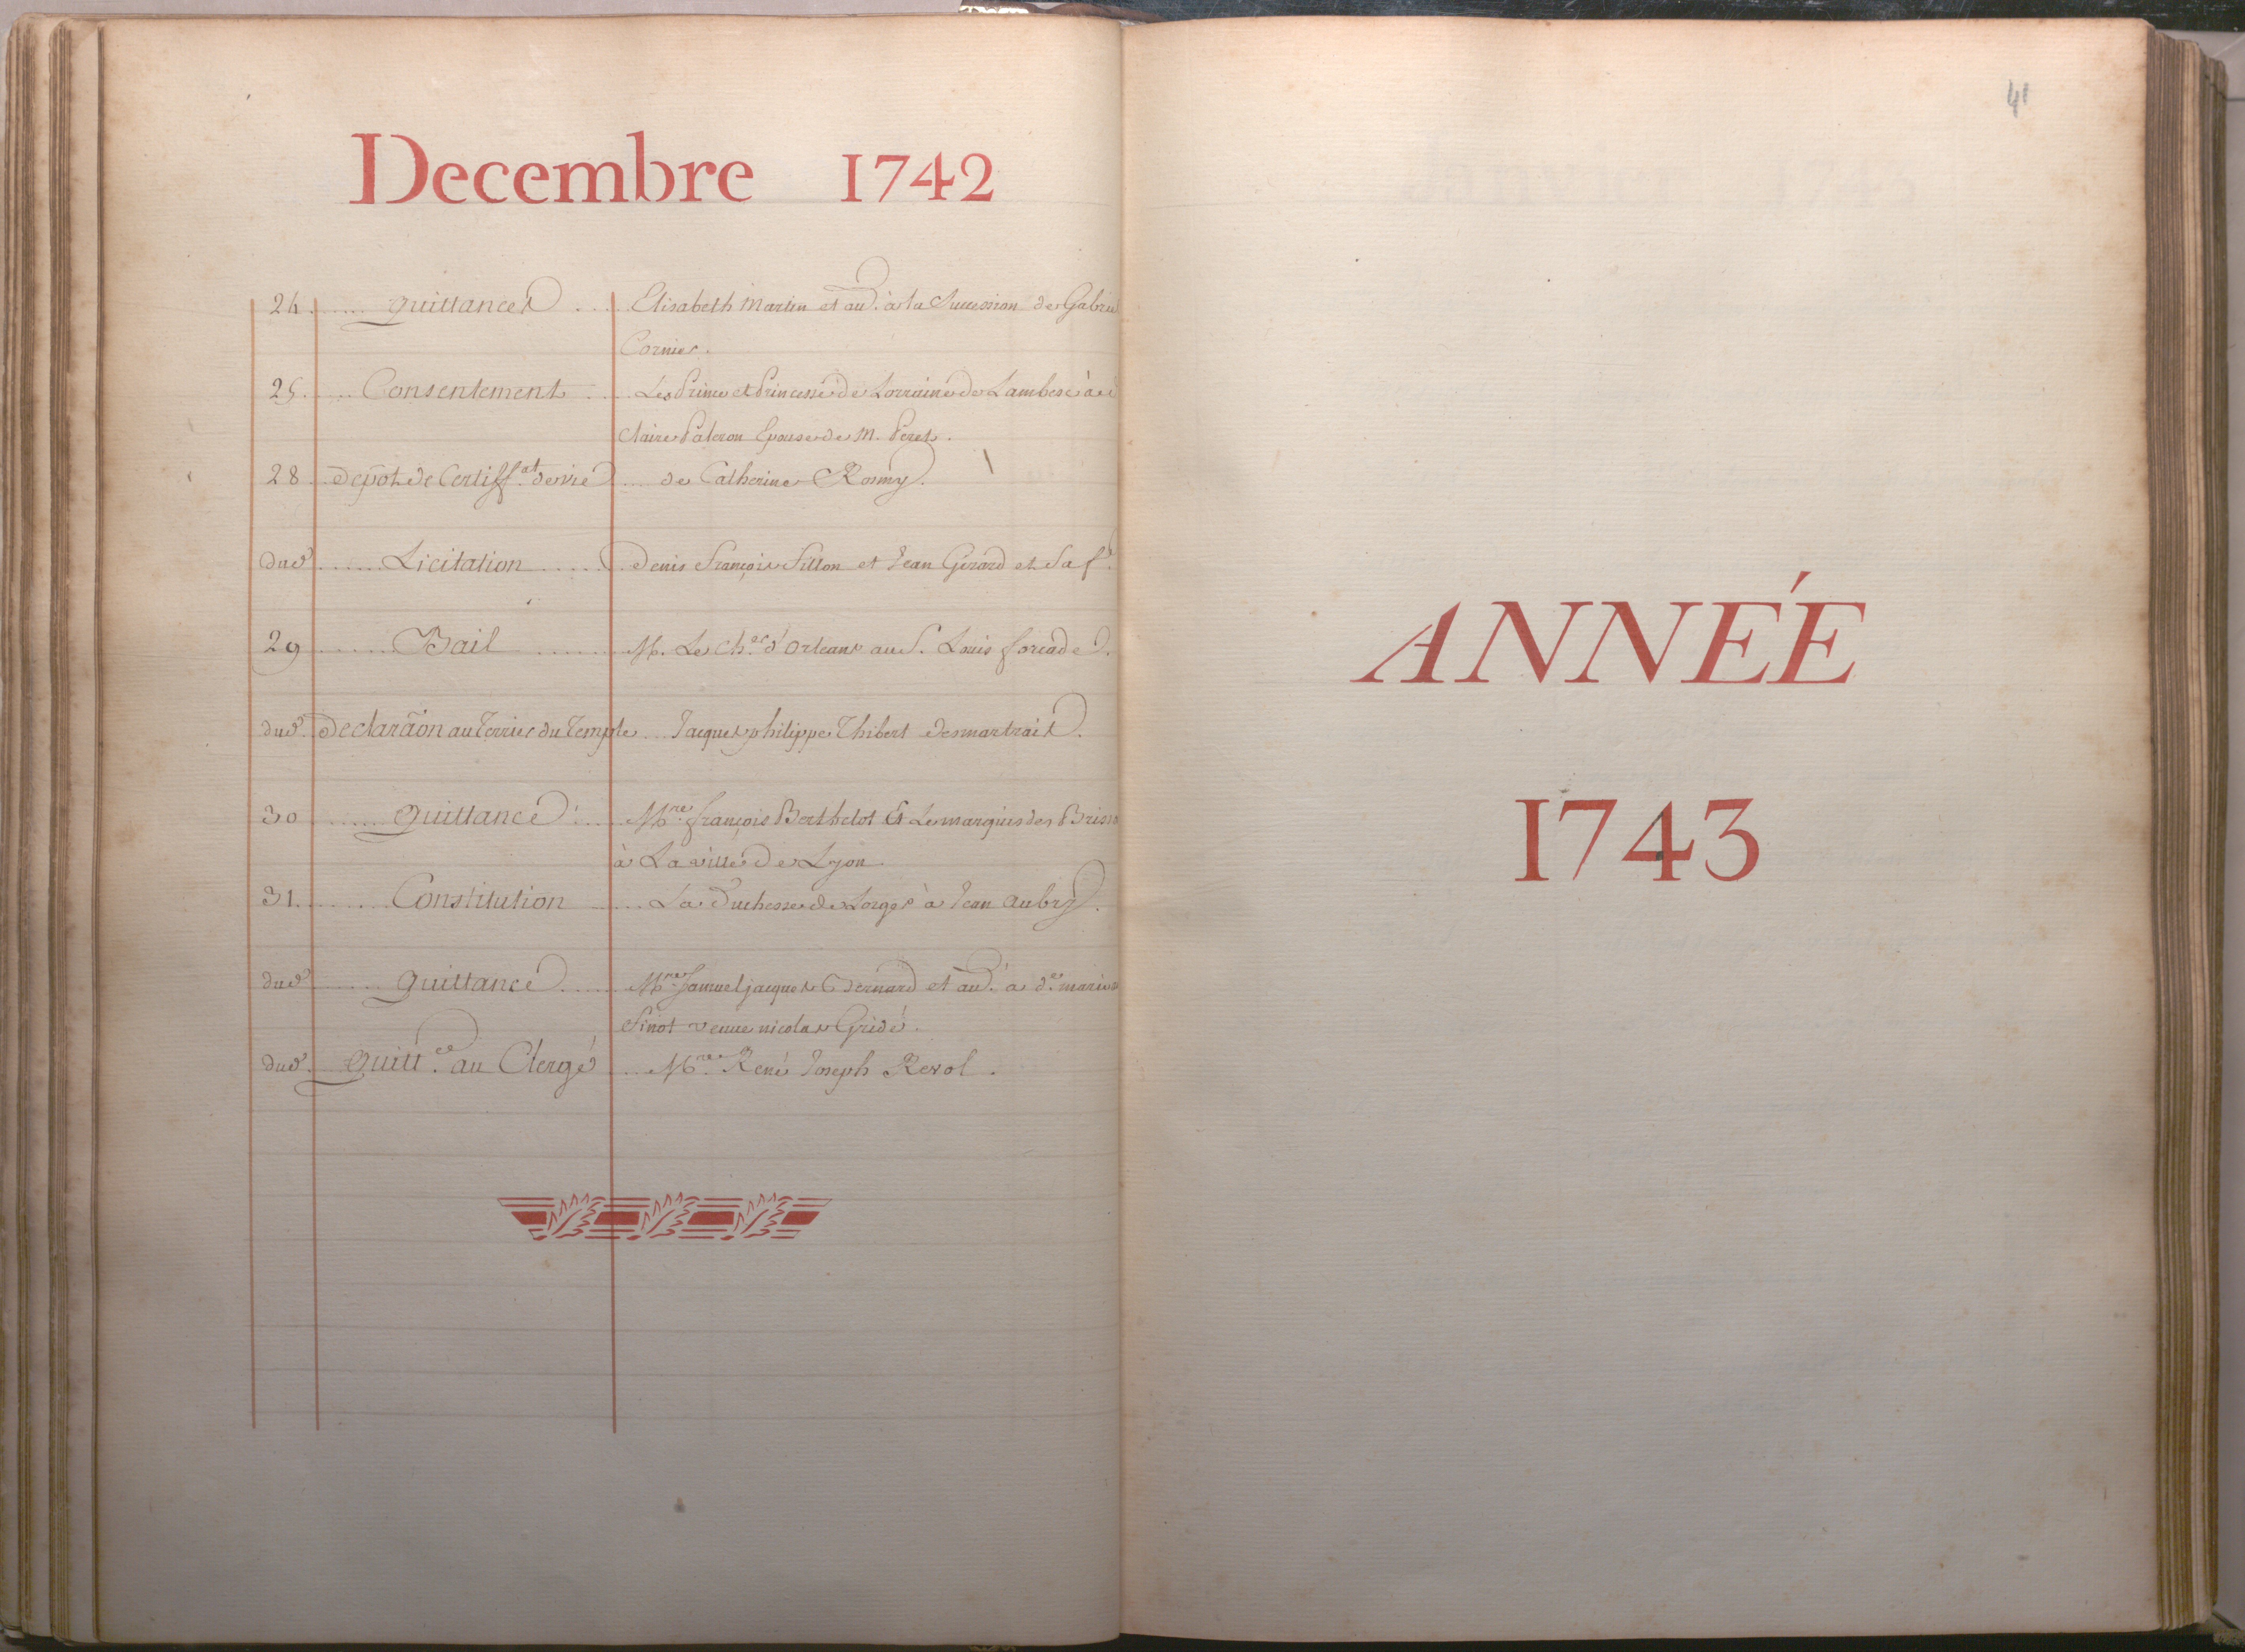 Decembre 1742
24. quittances Elisabeth Martin et au. à la Succession de Gabriel
Cornier.
25. Consentement Les Prince et Princesse de Lorraine de Lambesc à
Claire Paleron Epouse de M. Peret.
28. depôt de Certiff.at de vie de Catherine Rosmy.
dud. Licitation Denis François Fillon et Jean Gerard et Sa f.e
29 Bail M. Le Ch.er d'Orleans au S. Louis forcade.
dud. Declaraõn au Terrier du Temple Jacques philippe Thibert desmartrais.
30 quittance M.re françois Berthelot Et Le marquis de
à La ville de Lyon.
31. Constitution La Duchesse de Lorges à Jean Aubry.
dud. quittance M.re Samuel jacques Bernard et au. à d.e marie
Pinot veuve nicolas Gridé.
dud. quitt.ce au Clergé M.re René Joseph Revol.
41
ANNÉE
1743